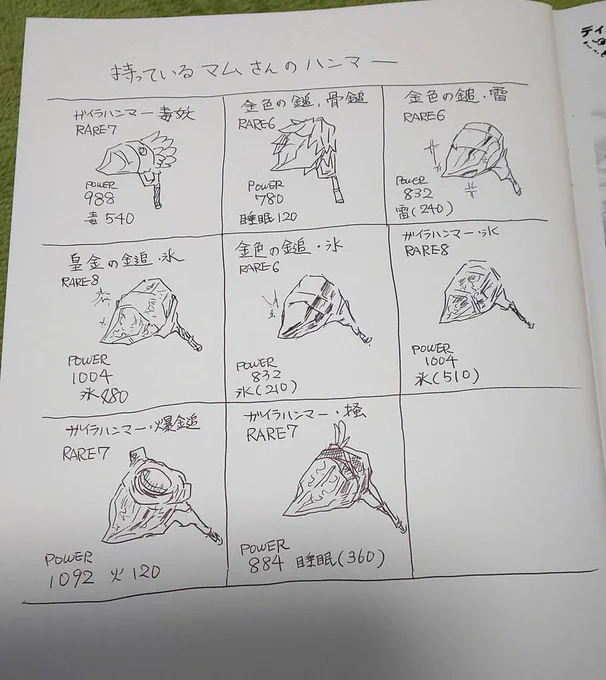 持っているマムさんのハンマー
ガイラハンマー・毒妖
RARE7
POWER
988
毒 540
金色の鎚・骨鎚
RARE6
POWER
780
睡眠120
金色の鎚・雷
RARE6
POWER
832
雷(240)
皇金の鎚・氷
RARE8
POWER
1004
氷480
金色の鎚・氷
RARE6
POWER
832
氷(210)
ガイラハンマー・氷
RARE8
POWER
1004
氷(510)
ガイラハンマー・爆鎚
RARE7
POWER
1092 火 120
ガイラハンマー・掻
RARE7
POWER
884 睡眠(360)